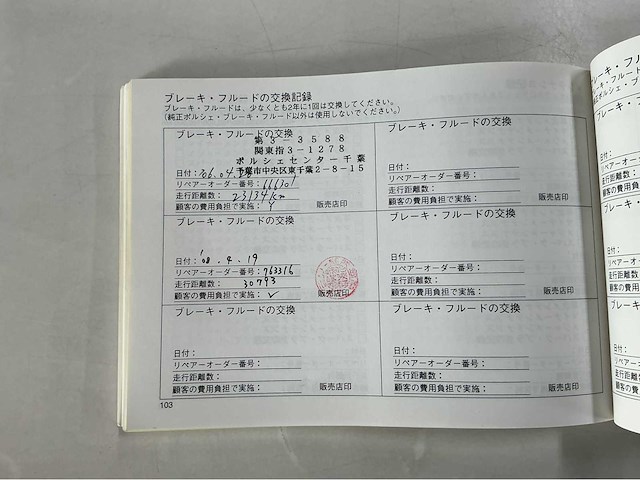 ブレーキ・フルードの交換記録
ブレーキ・フルードは、少なくとも2年に1回は交換してください。
(純正ポルシェ・ブレーキ・フルード以外は使用しないでください。)
ブレーキ・フルードの交換
第3-3588
関東指3-1278
ポルシェセンター千葉
千葉市中央区東千葉2-8-15
日付：'06.04.
リペアーオーダー番号：666301
走行距離数：23134km
顧客の費用負担で実施：
販売店印
ブレーキ・フルードの交換
日付：
リペアーオーダー番号：
走行距離数：
顧客の費用負担で実施：
販売店印
ブレーキ・フルードの交換
日付：'08.4.19
リペアーオーダー番号：763316
走行距離数：30793
顧客の費用負担で実施：✓
販売店印
ブレーキ・フルードの交換
日付：
リペアーオーダー番号：
走行距離数：
顧客の費用負担で実施：
販売店印
ブレーキ・フルードの交換
日付：
リペアーオーダー番号：
走行距離数：
顧客の費用負担で実施：
販売店印
ブレーキ・フルードの交換
日付：
リペアーオーダー番号：
走行距離数：
顧客の費用負担で実施：
販売店印
103